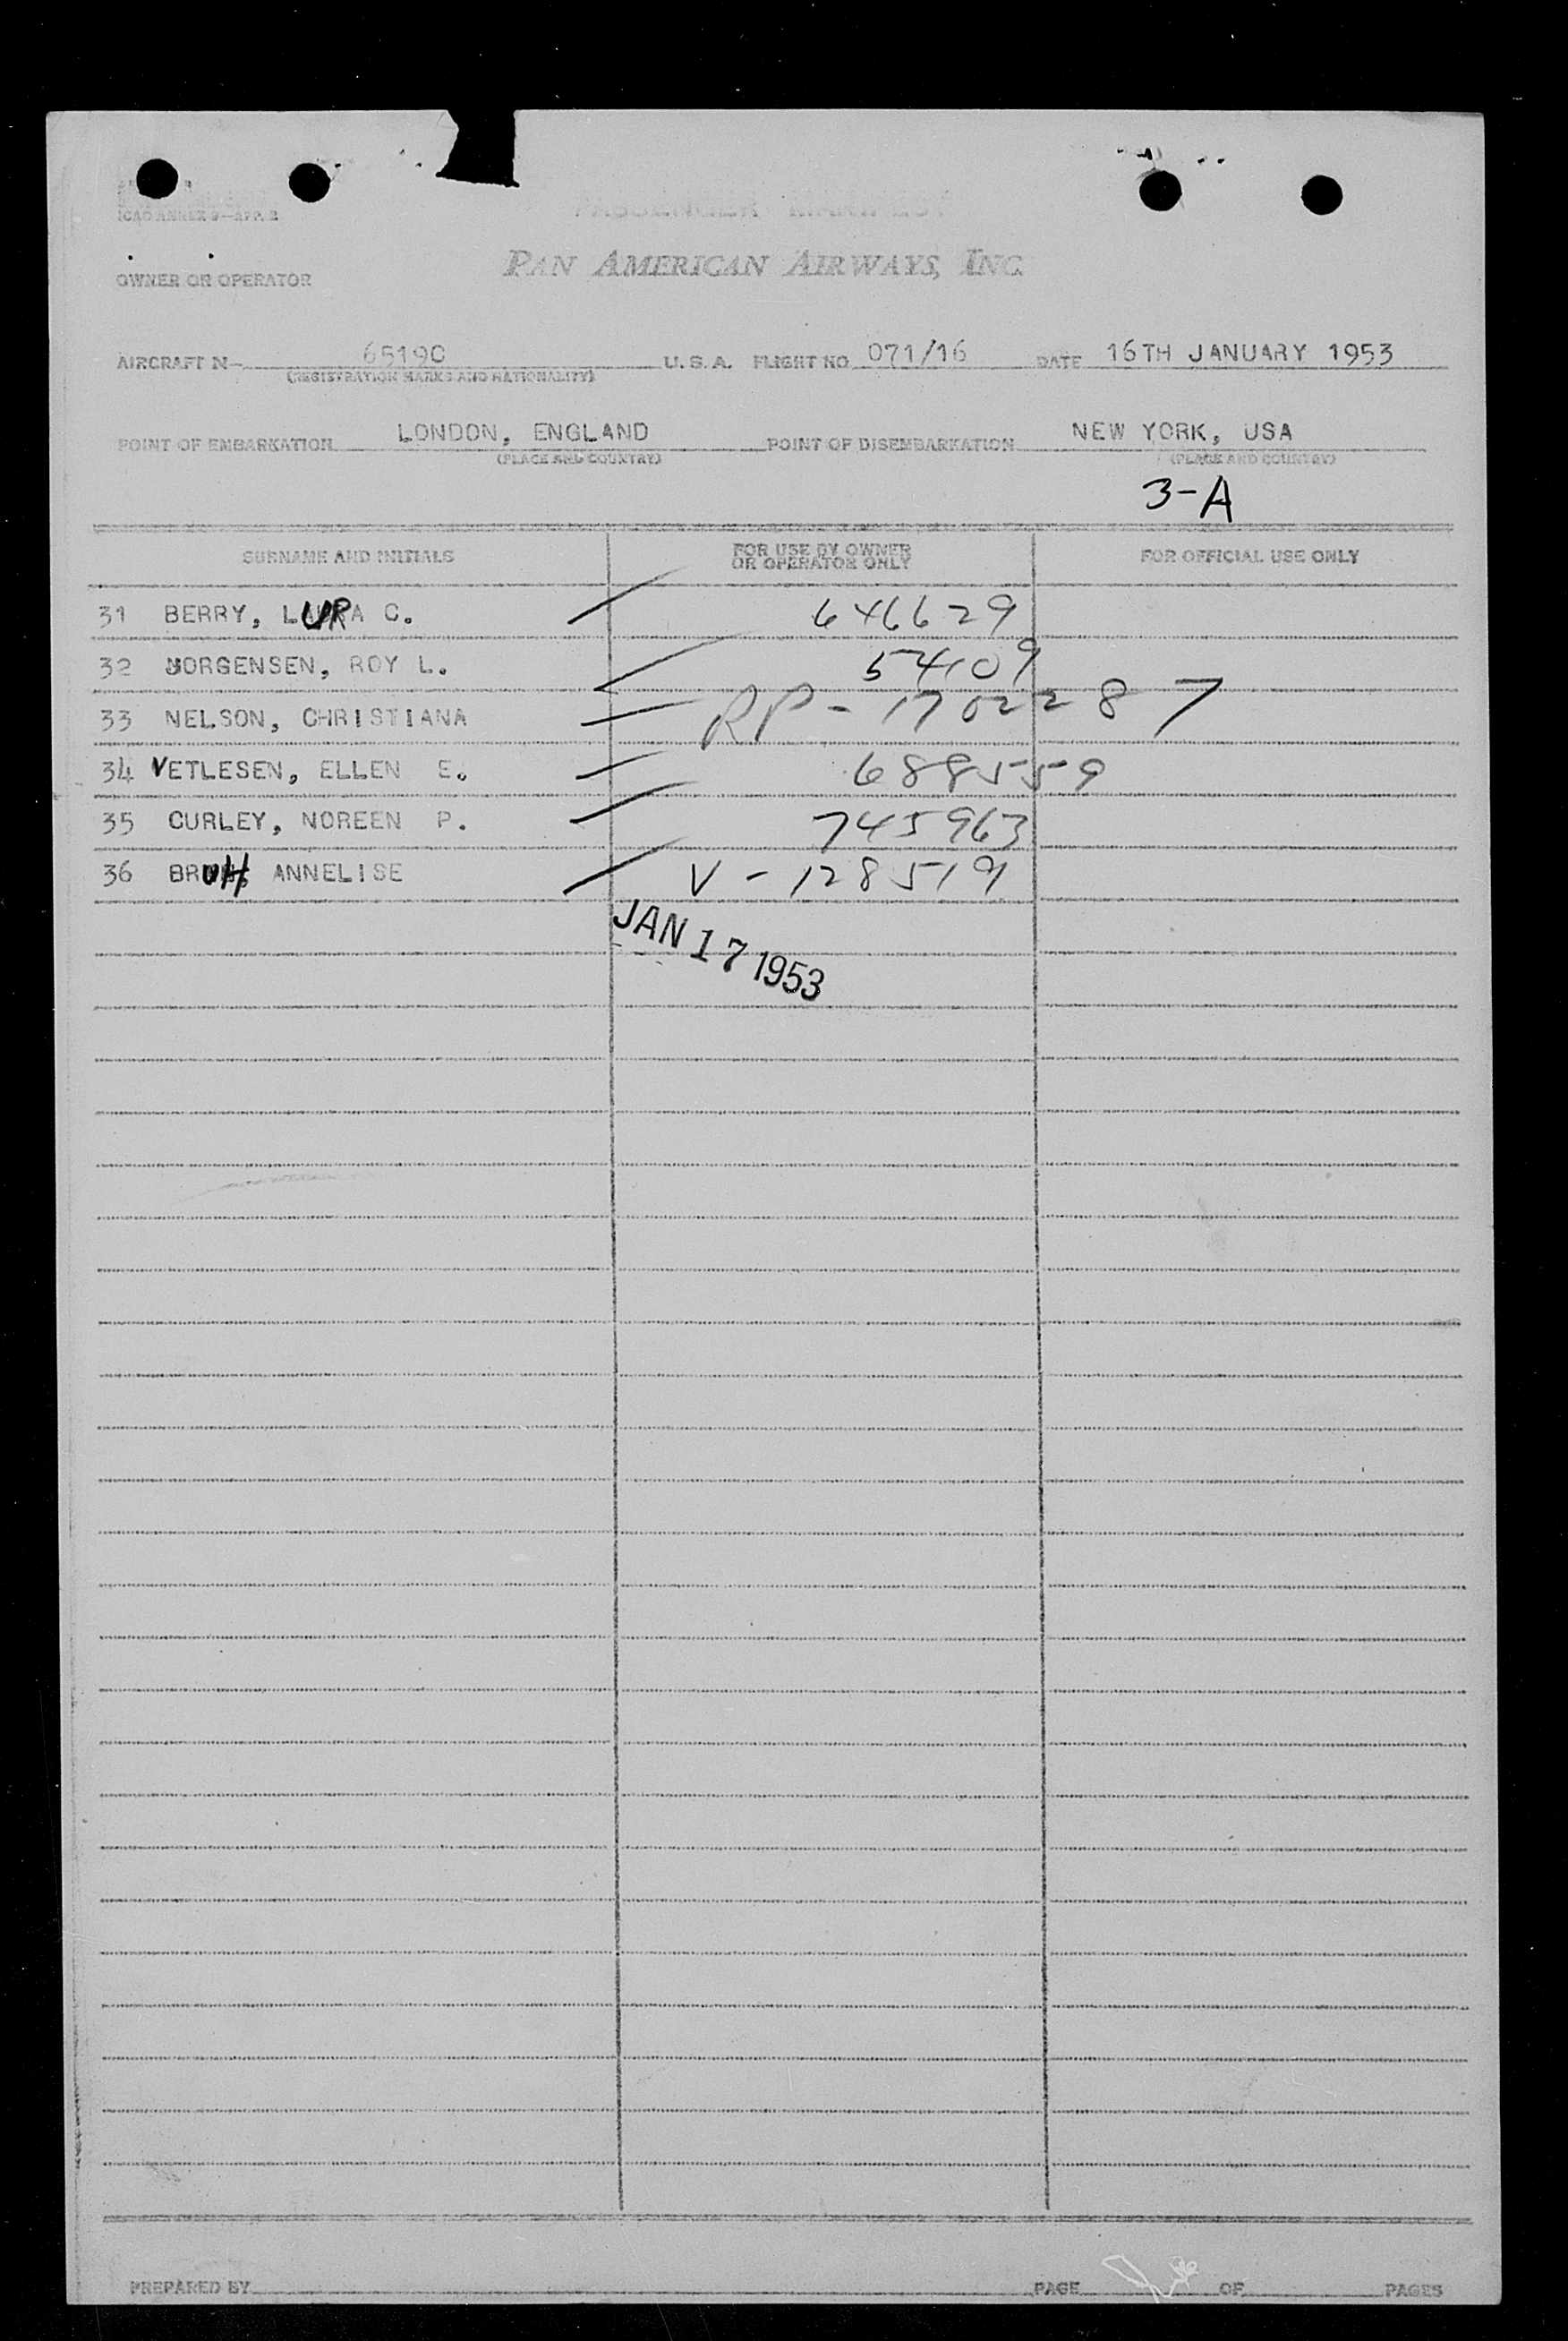 ICAO ANNEX 9—APP. 2
PASSENGER MANIFEST
OWNER OR OPERATOR
PAN AMERICAN AIRWAYS, INC.
AIRCRAFT N- 65190 U. S. A. FLIGHT NO. 071/16 DATE 16TH JANUARY 1953
(REGISTRATION MARKS AND NATIONALITY)
POINT OF EMBARKATION LONDON, ENGLAND POINT OF DISEMBARKATION NEW YORK, USA
(PLACE AND COUNTRY) (PLACE AND COUNTRY)
3-A
SURNAME AND INITIALS FOR USE BY OWNER OR OPERATOR ONLY FOR OFFICIAL USE ONLY
31 BERRY, LAURA C. 646629
32 JORGENSEN, ROY L. 54109
33 NELSON, CHRISTIANA RP - 1702287
34 VETLESEN, ELLEN E. 688559
35 CURLEY, NOREEN P. 745963
36 BRUH, ANNELISE V - 128519
JAN 17 1953
PREPARED BY PAGE OF PAGES